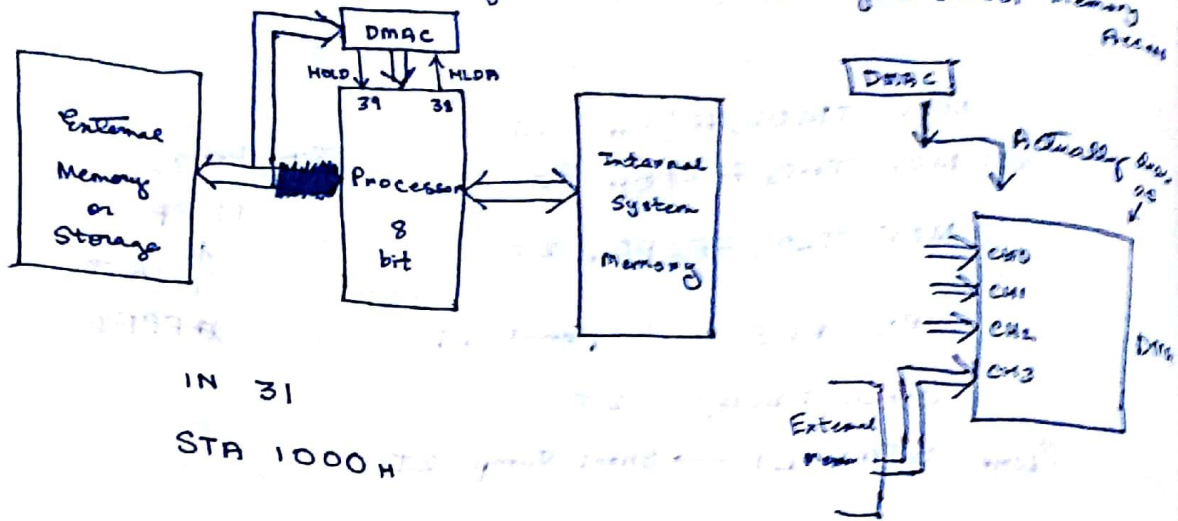 Memory
Access
DMAC
HOLD
HLDA
39
38
External
Memory
or
Storage
Processor
8
bit
Internal
System
Memory
IN 31
STA 1000 H
DMAC
Actually
CH0
CH1
CH2
CH3
External